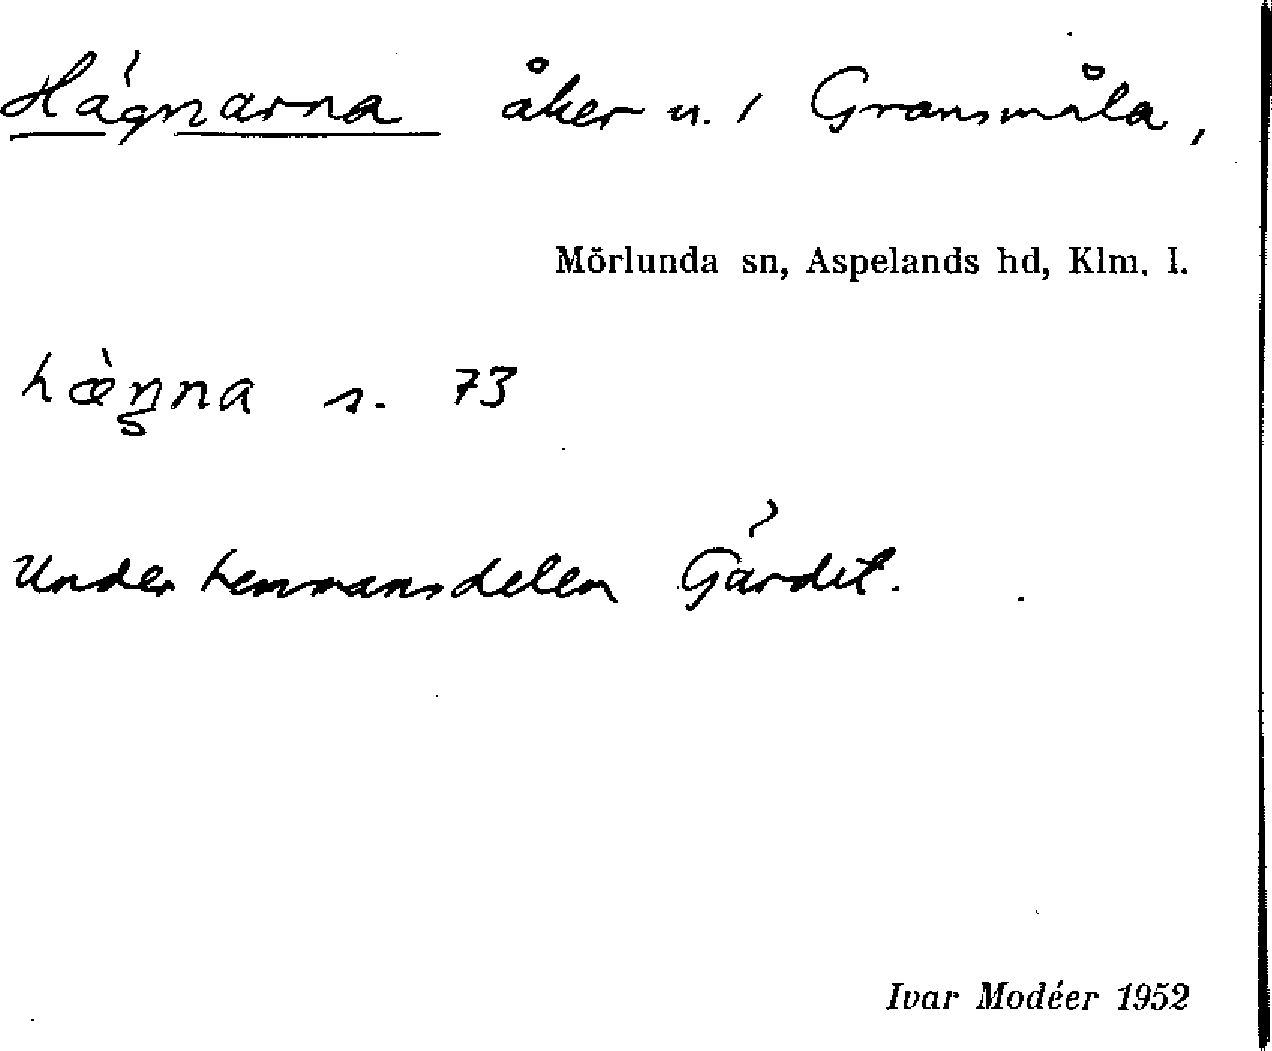 Hägnarna åker u. 1 Gransmåla,
Mörlunda sn, Aspelands hd, Klm. l.
hæ̀n̠na s. 73
Under hemmansdelen Gärdet.
Ivar Modéer 1952